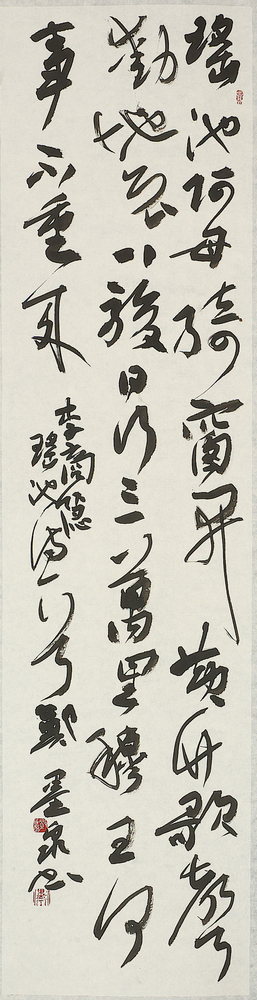 瑤池阿母綺窗開黃竹歌聲
動地哀八駿日行三萬里穆王何
事不重來
李商隱
瑤池詩一首鄭墨泉書